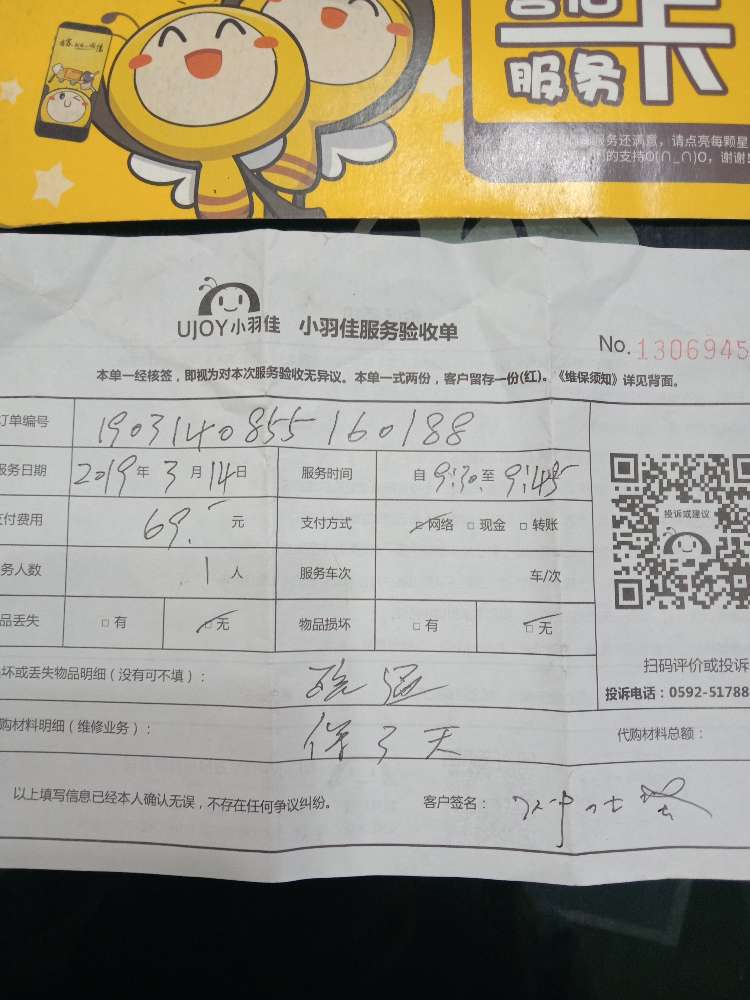 服务
卡
服务还满意，请点亮每颗星
的支持O(∩_∩)O，谢谢!
UJOY小羽佳 小羽佳服务验收单
No. 1306945
本单一经核签，即视为对本次服务验收无异议。本单一式两份，客户留存一份(红)。《维保须知》详见背面。
订单编号 1903140855160188
服务日期 2019年 3月 14日 服务时间 自9:30至9:45
支付费用 69.- 元 支付方式 □网络 □现金 □转账
务人数 1人 服务车次 车/次
品丢失 □有 □无 物品损坏 □有 □无
投诉或建议
扫码评价或投诉
投诉电话：0592-51788
坏或丢失物品明细（没有可不填）： 疏通
购材料明细（维修业务）： 保3天
代购材料总额：
以上填写信息已经本人确认无误，不存在任何争议纠纷。 客户签名：